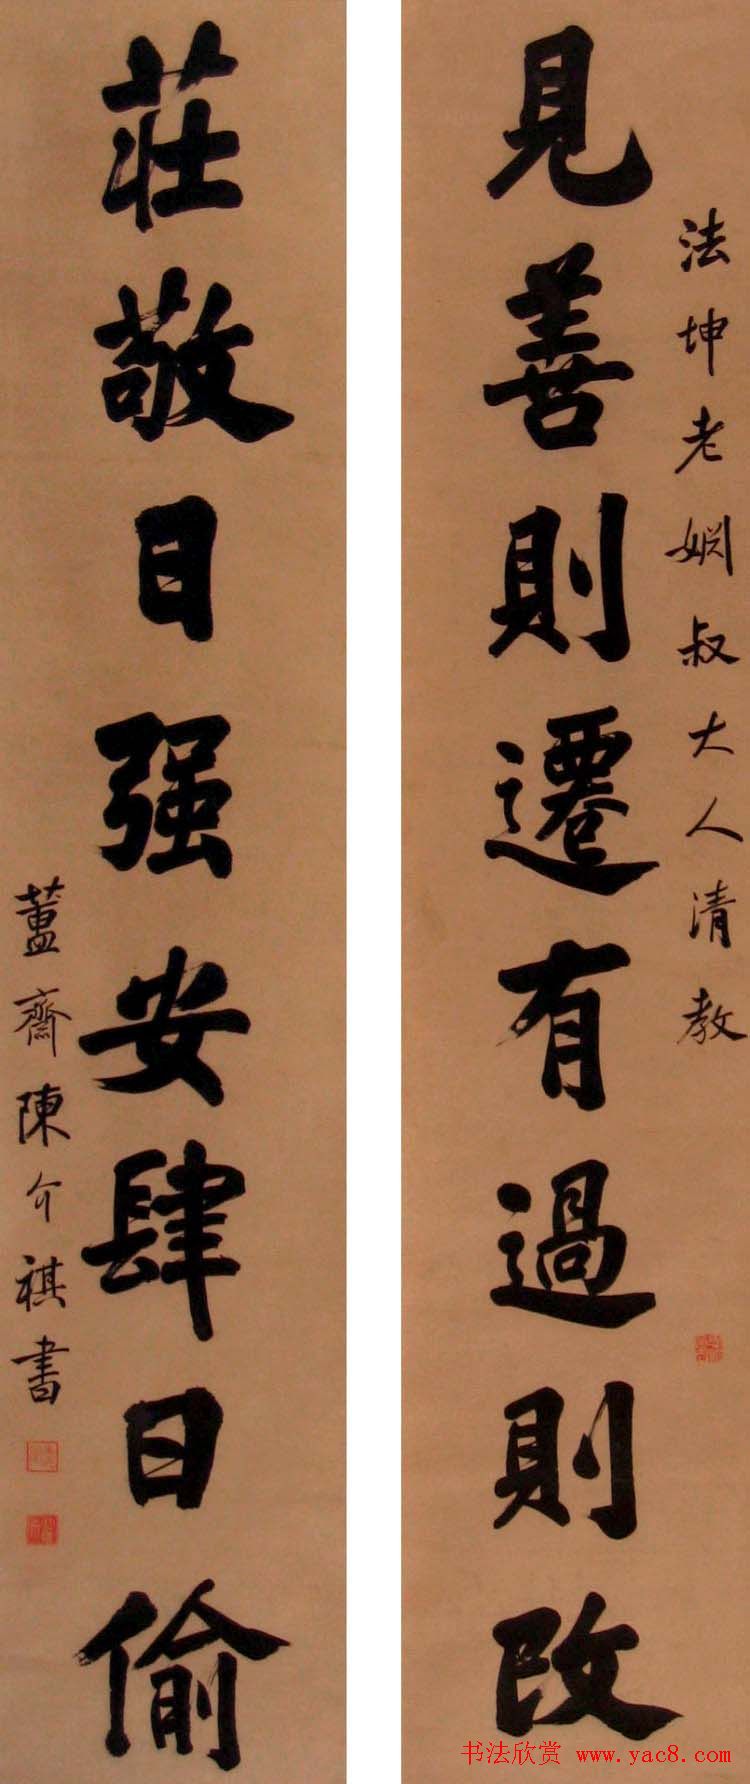 法坤老姻叔大人清教
見善則遷有過則改
莊敬日强安肆日偷
簠齋陳介祺書
书法欣赏 www.yac8.com